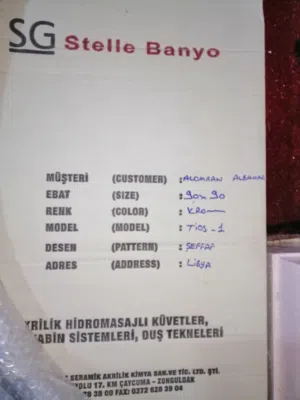 SG Stelle Banyo
MÜŞTERİ (CUSTOMER) :
EBAT (SIZE) : 90x90
RENK (COLOR) : Krom
MODEL (MODEL) : Tios-1
DESEN (PATTERN) : ŞEFFAF
ADRES (ADDRESS) : Libya
KRİLİK HİDROMASAJLI KÜVETLER,
ABİN SİSTEMLERİ, DUŞ TEKNELERİ
SERAMİK AKRİLİK KİMYA SAN.VE TİC. LTD. ŞTİ.
YOLU 17. KM ÇAYCUMA - ZONGULDAK
39 00 FAX: 0372 628 39 04